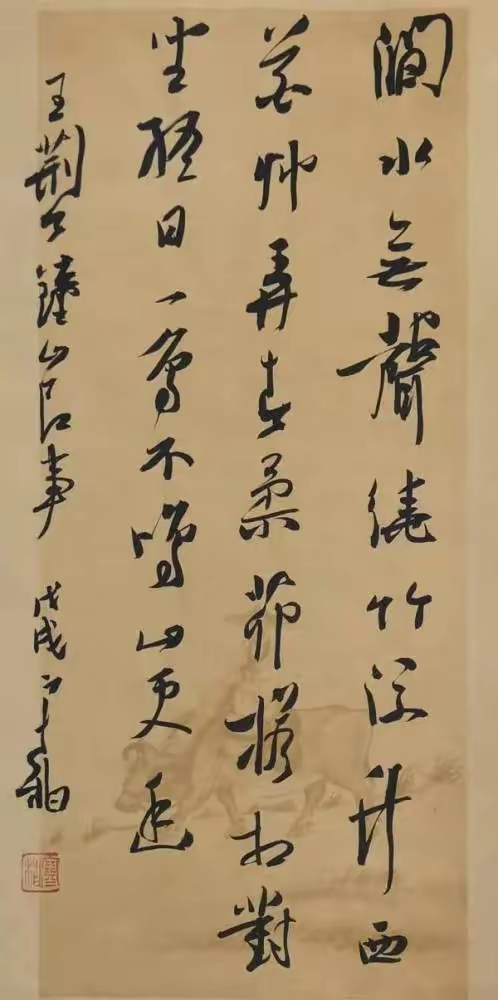 澗水無聲繞竹流竹西
花艸弄春柔茆檐相對
坐終日一鳥不鳴山更幽
王荆公鐘山即事 戊戌